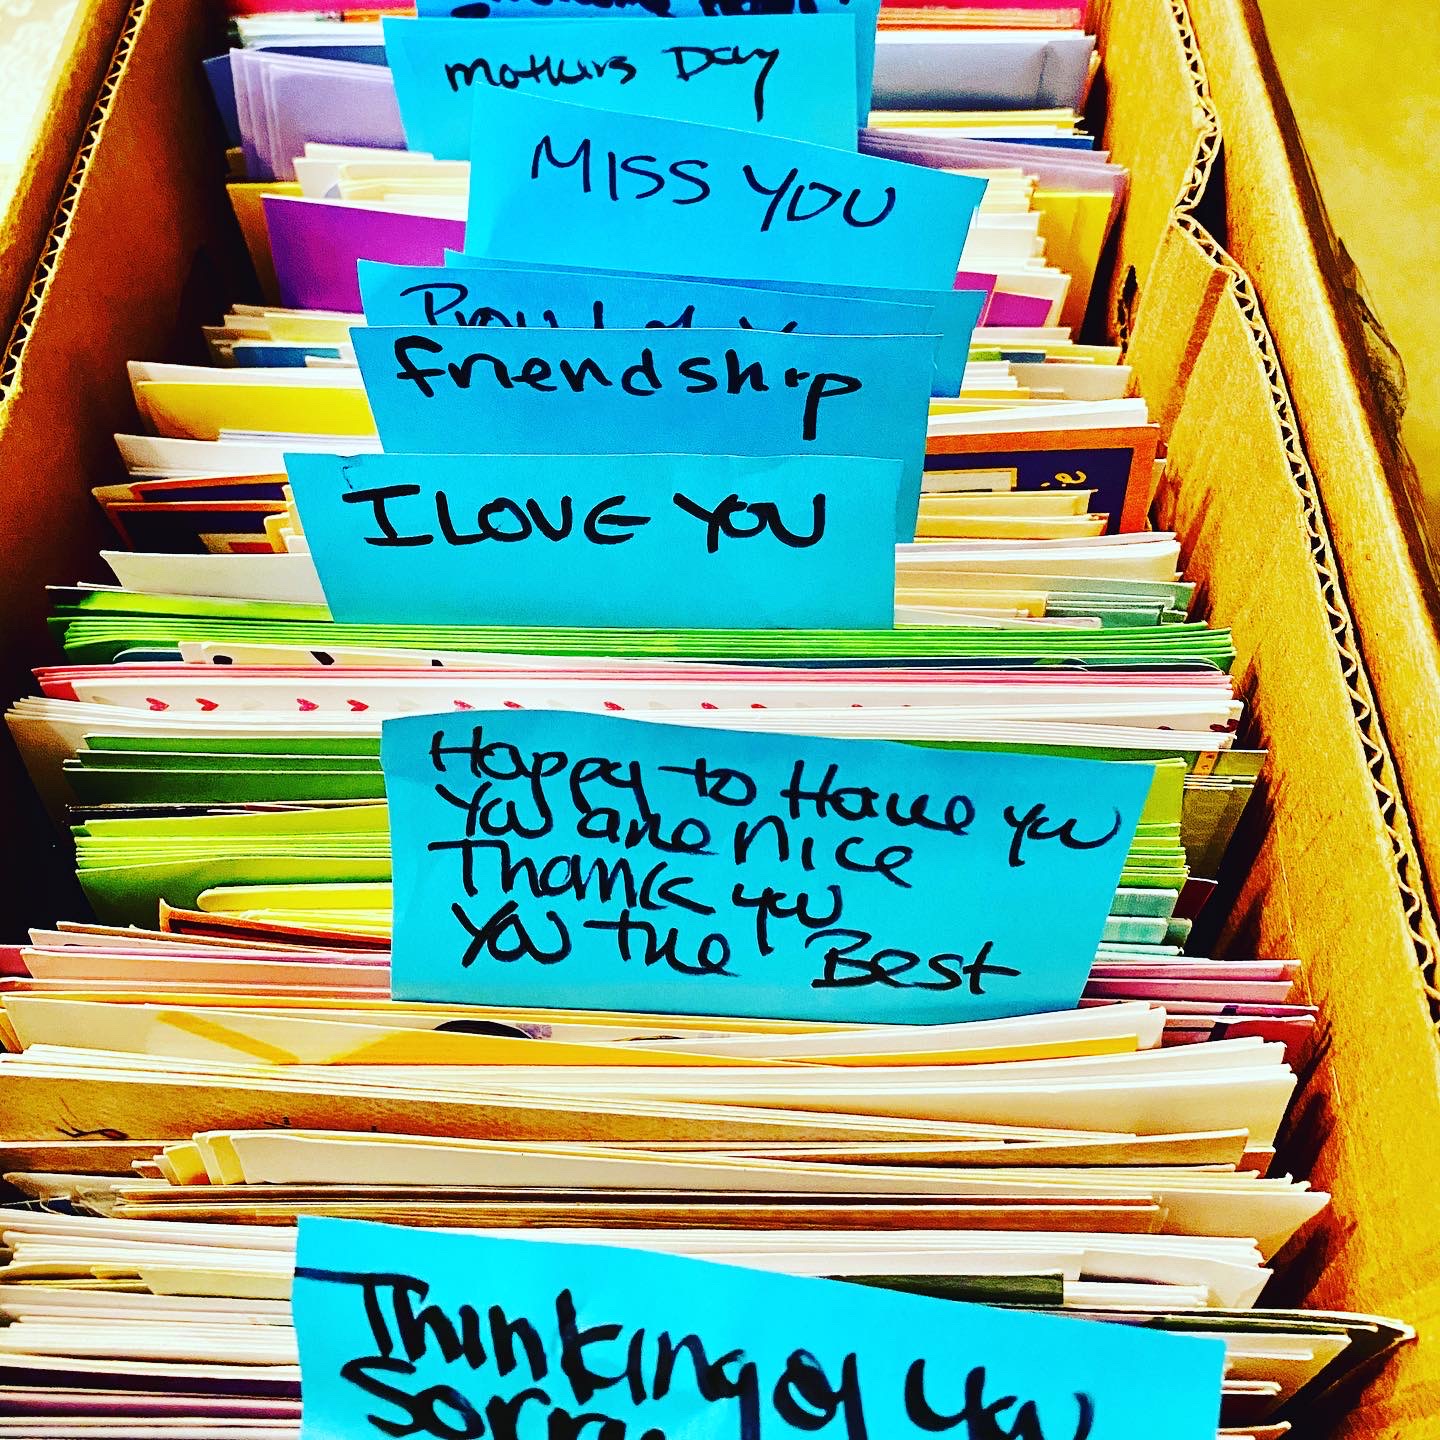 mothers Day
MISS YOU
Proud of Y
friendship
I LOVE YOU
Happy to Have you
You are nice
Thank you
You the Best
Thinking of you
Sorry